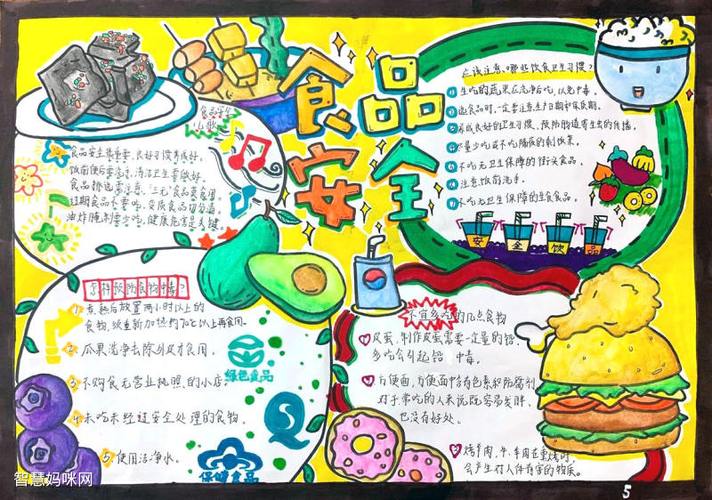 食品
安全
食品安全
儿歌
食品安全很重要,良好习惯养成好。
饭前便后要洗手,清洁卫生要做好。
食品挑选需注意,"三无"食品莫食用。
过期食品不要吃,变质食品切勿尝。
油炸腌制要少吃,健康危害是关键。
应该注意哪些饮食卫生习惯?
生吃的蔬果应洗净后吃,以免中毒。
选食品时,一定要注意生产日期和保质期。
养成良好的卫生习惯,预防肠道寄生虫的传播。
尽量少吃或不吃隔夜的剩饭菜。
不吃无卫生保障的街头食品。
注意饭前洗手。
不吃无卫生保障的生食食品。
安 全 饮 品
怎样预防食物中毒?
1 煮熟后放置两小时以上的
食物,须重新加热到70℃以上再食用。
2 瓜果洗净去除外皮才食用。
3 不购食无营业执照的小店
4 未吃未经过安全处理的食物。
5 使用洁净水。
绿色食品
保健食品
不宜多吃的几点食物
1 皮蛋,制作皮蛋需要一定量的铅,
多吃会引起铅中毒。
2 方便面,方便面中含有色素和防腐剂
对于常吃的人来说既容易发胖,
也没有好处。
3 烤羊肉,牛、羊肉在熏烤时,
会产生对人体有害的物质。
5
智慧妈咪网